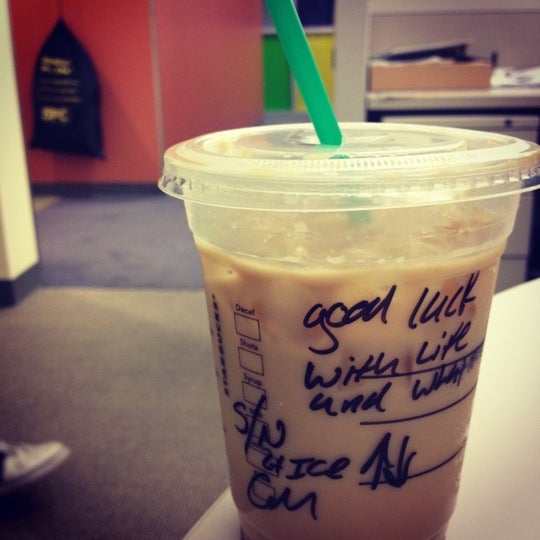 Decaf
Shots
Syrup
STARBUCKS
good luck
with life
and what
S/N
ICE